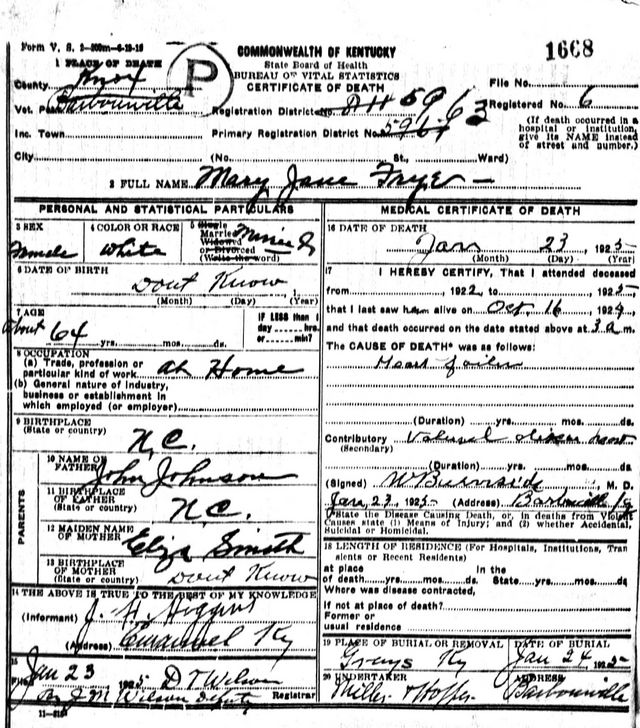 Form V. S.
COMMONWEALTH OF KENTUCKY
State Board of Health
BUREAU OF VITAL STATISTICS
CERTIFICATE OF DEATH
1668
1 PLACE OF DEATH
P
County Knox
File No.
Vot. Barbourville
Registration District No. 5963
Registered No. 6
(If death occurred in a hospital or institution, give its NAME instead of street and number.)
Inc. Town
Primary Registration District No.
City (No. St., Ward)
2 FULL NAME Mary Jane Frye
PERSONAL AND STATISTICAL PARTICULARS
3 SEX
Female
4 COLOR OR RACE
White
5 Single
Married
Widowed
or Divorced
(Write the word)
Married
6 DATE OF BIRTH
Dont Know
(Month) (Day) (Year)
7 AGE
about 64 yrs. mos. ds.
IF LESS than 1
day hrs.
or min?
8 OCCUPATION
(a) Trade, profession or
particular kind of work at Home
(b) General nature of industry,
business or establishment in
which employed (or employer)
9 BIRTHPLACE
(State or country)
N.C.
PARENTS
10 NAME OF
FATHER
John Johnson
11 BIRTHPLACE
OF FATHER
(State or country)
N.C.
12 MAIDEN NAME
OF MOTHER
Eliza Smith
13 BIRTHPLACE
OF MOTHER
(State or country)
Dont Know
14 THE ABOVE IS TRUE TO THE BEST OF MY KNOWLEDGE
(Informant) J. H. Higgins
(Address) Emanuel Ky
15
Filed Jan 23 1925 D T Wilson
By J M Wilson Deputy Registrar
MEDICAL CERTIFICATE OF DEATH
16 DATE OF DEATH
Jan 23, 1925
(Month) (Day) (Year)
17 I HEREBY CERTIFY, That I attended deceased
from 1922, to 1925
that I last saw h alive on Oct. 16 1924,
and that death occurred on the date stated above at 3 a m.
The CAUSE OF DEATH* was as follows:
Heart failure
(Duration) yrs. mos. ds.
Contributory
(Secondary)
(Duration) yrs. mos. ds.
(Signed) W Burnside, M. D.
Jan, 23, 1925 (Address) Barbourville Ky
*State the Disease Causing Death, or, in deaths from Violent
Causes state (1) Means of Injury; and (2) whether Accidental,
Suicidal or Homicidal.
18 LENGTH OF RESIDENCE (For Hospitals, Institutions, Tran
sients or Recent Residents)
at place In the
of death yrs. mos. ds. State yrs. mos. ds.
Where was disease contracted,
If not at place of death?
Former or
usual residence
19 PLACE OF BURIAL OR REMOVAL
Grays Ky
DATE OF BURIAL
Jan 24 1925
20 UNDERTAKER
Miller & Hopper
ADDRESS
Barbourville